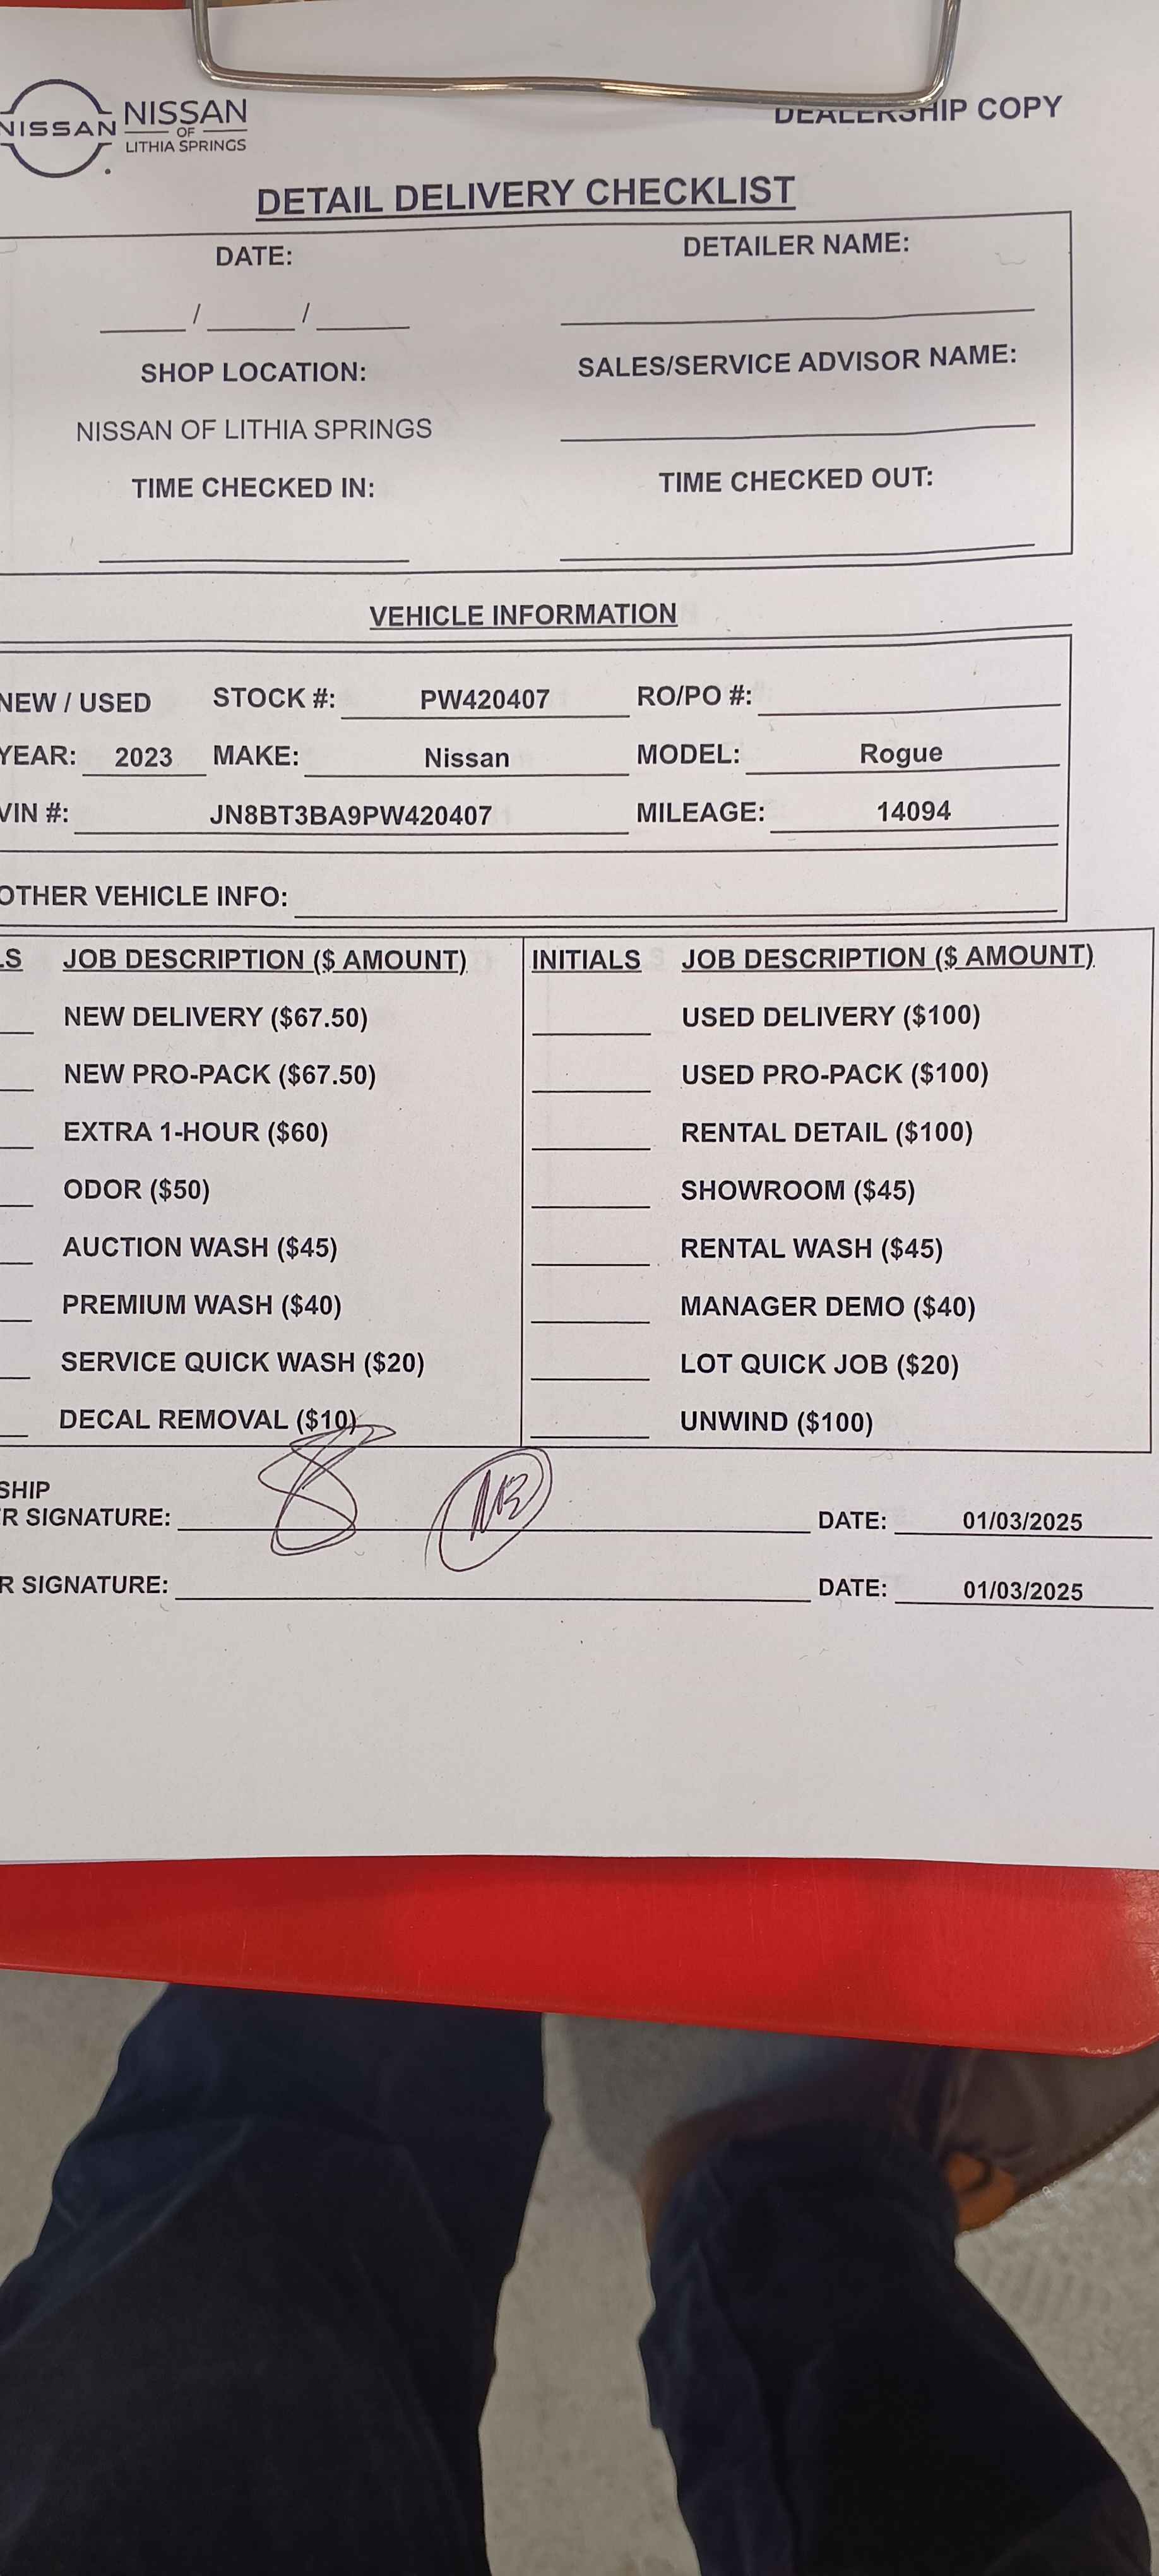 DEALERSHIP COPY
NISSAN
NISSAN
OF
LITHIA SPRINGS
DETAIL DELIVERY CHECKLIST
DATE: DETAILER NAME:
____ / ____ / ____ ____
SHOP LOCATION: SALES/SERVICE ADVISOR NAME:
NISSAN OF LITHIA SPRINGS ____
TIME CHECKED IN: TIME CHECKED OUT:
VEHICLE INFORMATION
NEW / USED STOCK #: PW420407 RO/PO #:
YEAR: 2023 MAKE: Nissan MODEL: Rogue
VIN #: JN8BT3BA9PW420407 MILEAGE: 14094
OTHER VEHICLE INFO:
LS JOB DESCRIPTION ($ AMOUNT) INITIALS JOB DESCRIPTION ($ AMOUNT)
NEW DELIVERY ($67.50) USED DELIVERY ($100)
NEW PRO-PACK ($67.50) USED PRO-PACK ($100)
EXTRA 1-HOUR ($60) RENTAL DETAIL ($100)
ODOR ($50) SHOWROOM ($45)
AUCTION WASH ($45) RENTAL WASH ($45)
PREMIUM WASH ($40) MANAGER DEMO ($40)
SERVICE QUICK WASH ($20) LOT QUICK JOB ($20)
DECAL REMOVAL ($10) UNWIND ($100)
SHIP
R SIGNATURE: DATE: 01/03/2025
R SIGNATURE: DATE: 01/03/2025